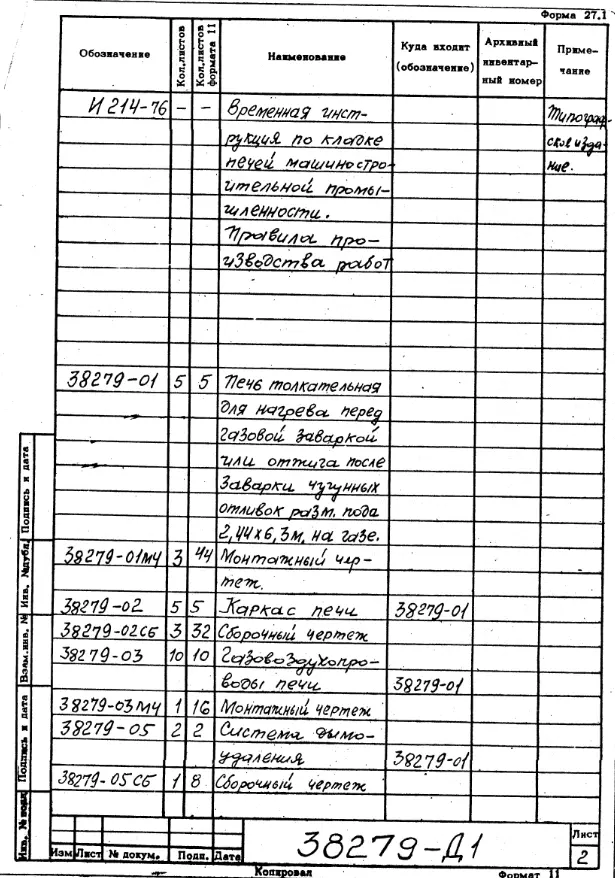 Форма 27.1
Обозначение Кол.листов Кол.листов формата 11 Наименование Куда входит (обозначение) Архивный инвентарный номер Примечание
И 214-76 - - Временная инст- Типограф-
рукция по кладке ское изда-
печей машиностро- ние.
ительной промы-
шленности.
Правила про-
изводства работ
38279-01 5 5 Печь толкательная
для нагрева перед
газовой заваркой
или отжига после
заварки чугунных
отливок разм. пода
2,44х6,3м. на газе.
38279-01МЧ 3 44 Монтажный чер-
теж.
38279-02 5 5 Каркас печи 38279-01
38279-02СБ 3 32 Сборочный чертеж
38279-03 10 10 Газовоздухопро-
воды печи 38279-01
38279-03МЧ 1 16 Монтажный чертеж
38279-05 2 2 Система дымо-
удаления 38279-01
38279-05СБ 1 8 Сборочный чертеж
Подпись и дата
Инв. №дубл.
Взам.инв. №
Подпись и дата
Инв. №подл.
38279-Д1
Лист
2
Изм Лист № докум. Подп. Дата
Копировал Формат 11